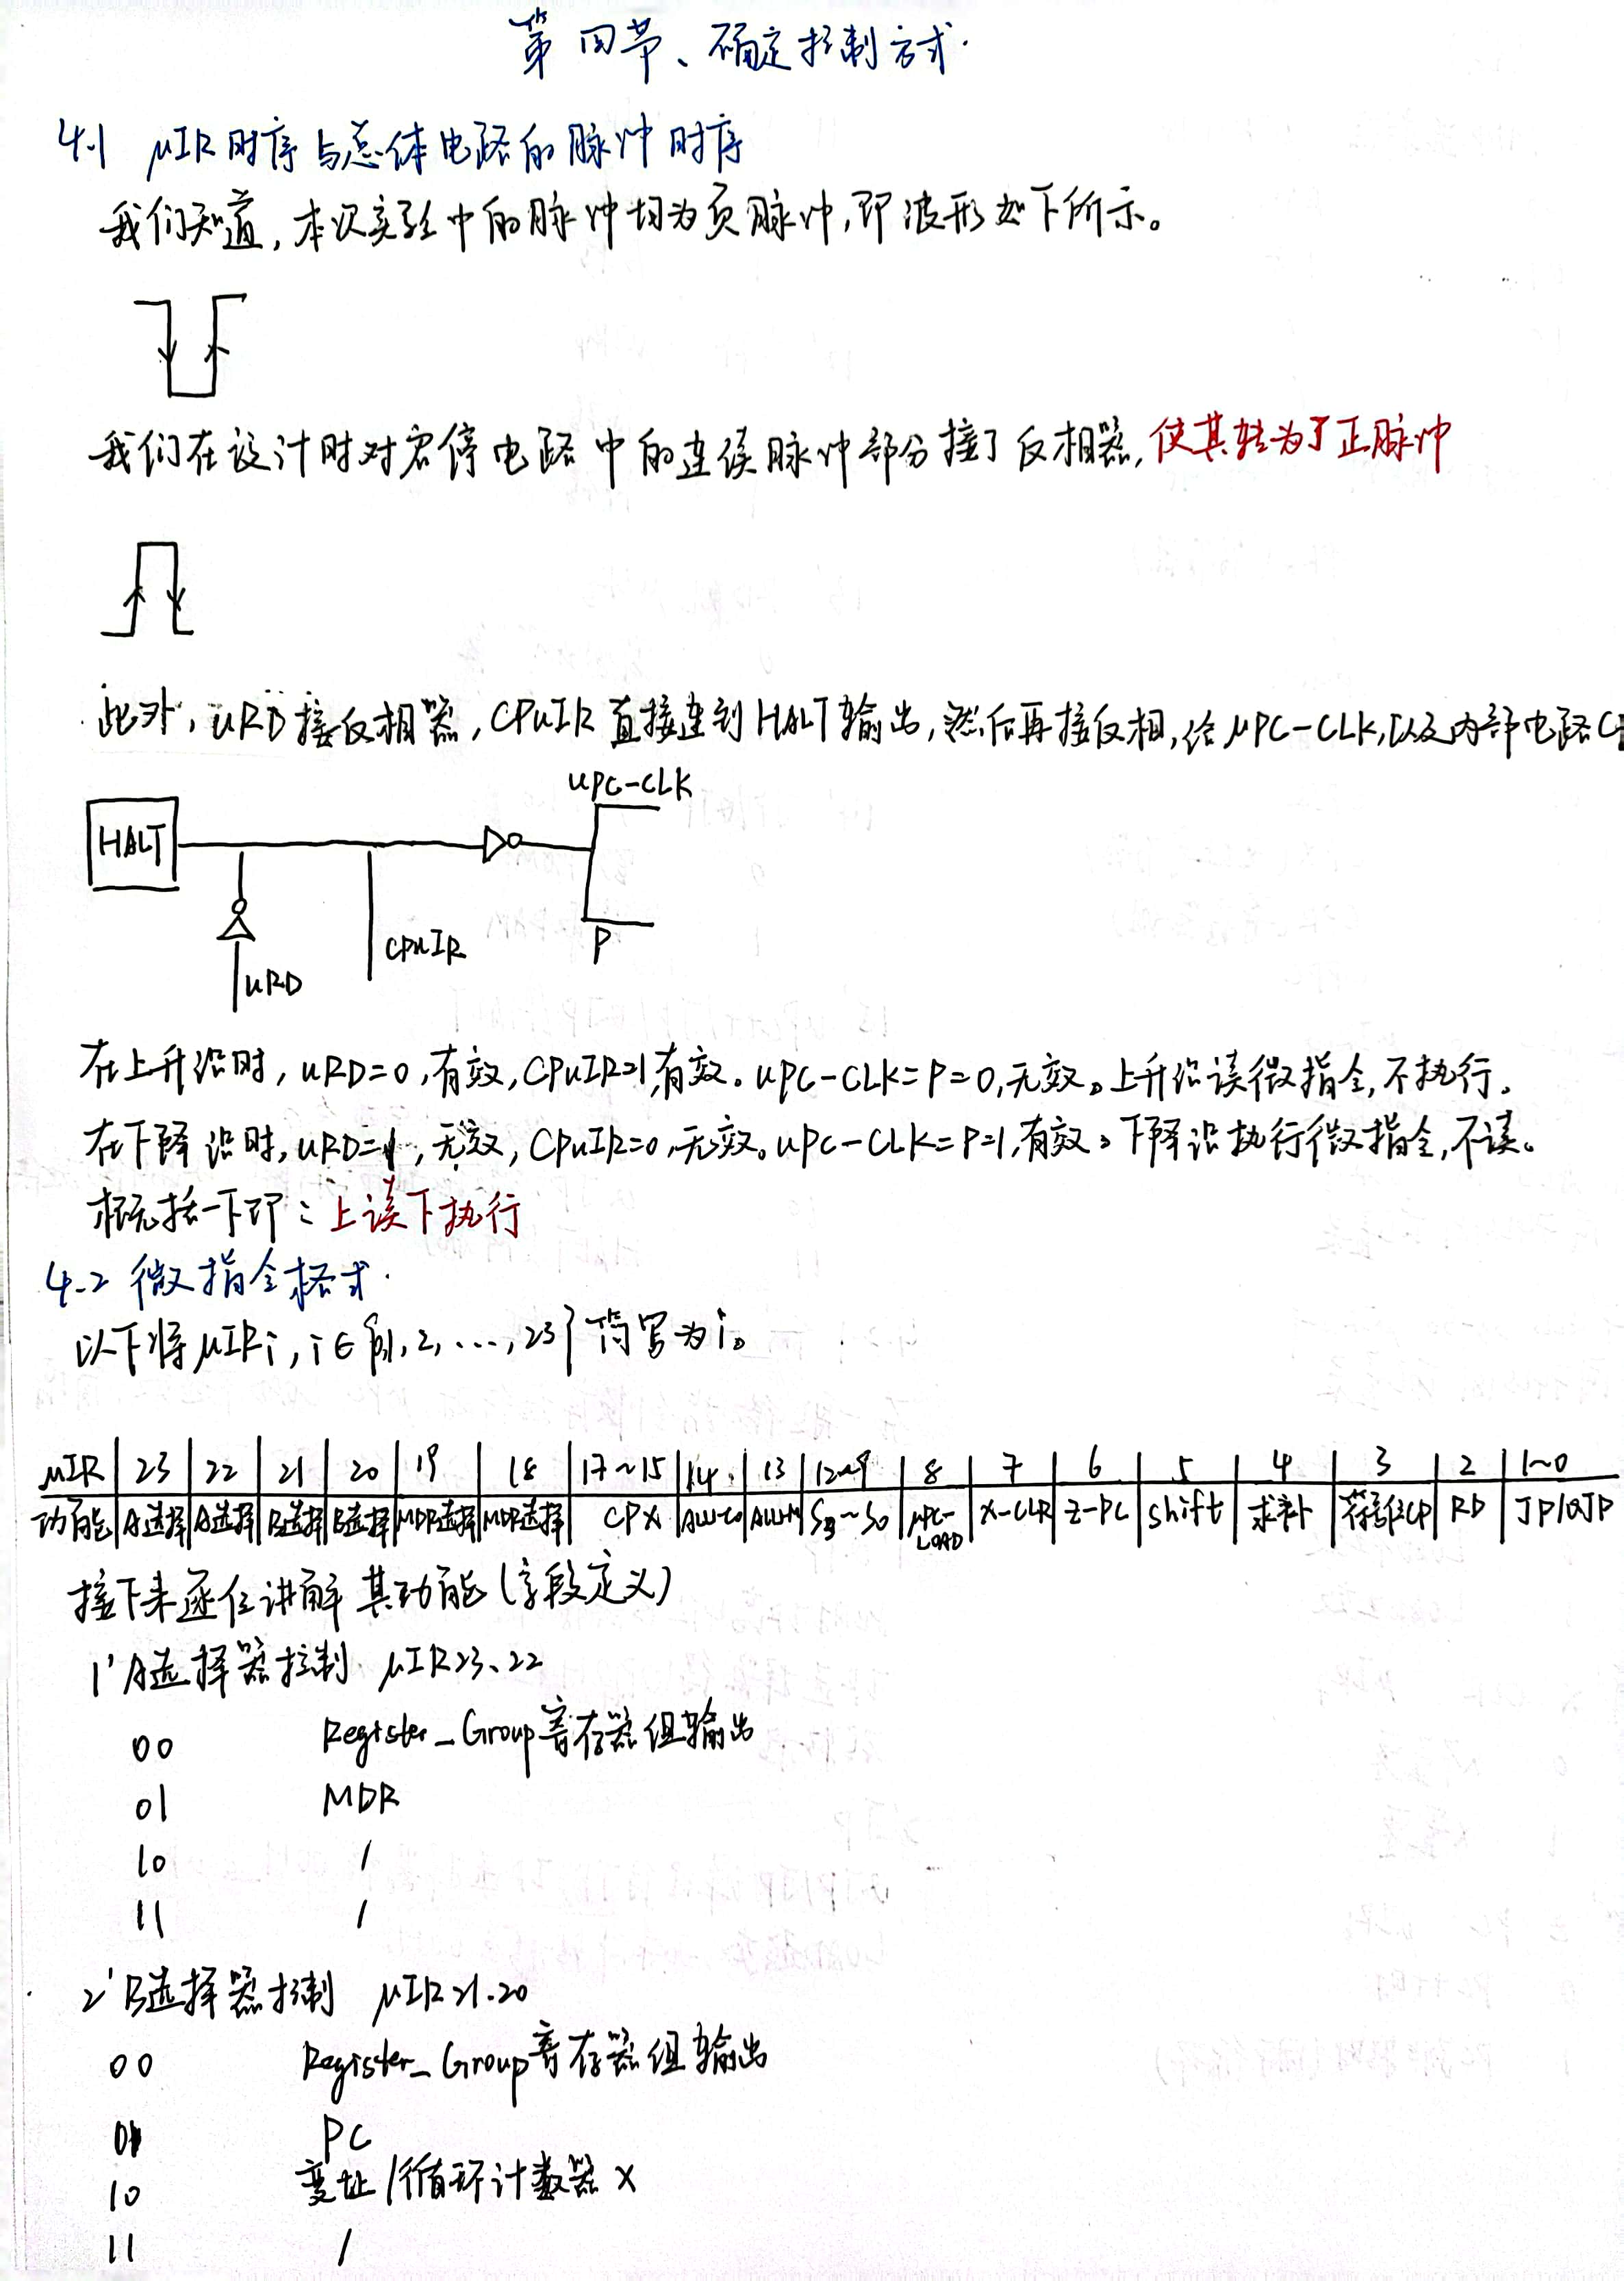 第四节、确定控制方式.
4.1 μIR时序与总体电路的脉冲时序
我们知道,本次实验中的脉冲均为负脉冲,即波形如下所示。
我们在设计时对启停电路中的连续脉冲部分接了反相器,使其转为了正脉冲
此外,uRD接反相器,CPuIR直接连到HALT输出,然后再接反相,给μPC-CLK,以及内部电路C
uPC-CLK
HALT
CPuIR
P
uRD
在上升沿时,uRD=0,有效,CPuIR=1,有效。uPC-CLK=P=0,无效。上升沿读微指令,不执行。
在下降沿时,uRD=1,无效,CPuIR=0,无效。uPC-CLK=P=1,有效。下降沿执行微指令,不读。
概括一下即:上读下执行
4.2 微指令格式.
以下将μIRi,i∈{0,1,2,...,23}简写为i。
μIR 23 22 21 20 19 18 17~15 14 13 12~9 8 7 6 5 4 3 2 1~0
功能 A选择 A选择 B选择 B选择 MDR选择 MDR选择 CPX ALU-C0 ALU-M S3~S0 μPC-LOAD X-CLR Z-PC shift 求补 符号位CP RD JP/QJP
接下来逐位讲解其功能(字段定义)
1' A选择器控制 μIR23、22
00 Register_Group寄存器组输出
01 MDR
10 /
11 /
2' B选择器控制 μIR21.20
00 Register_Group寄存器组输出
01 PC
10 变址/循环计数器X
11 /